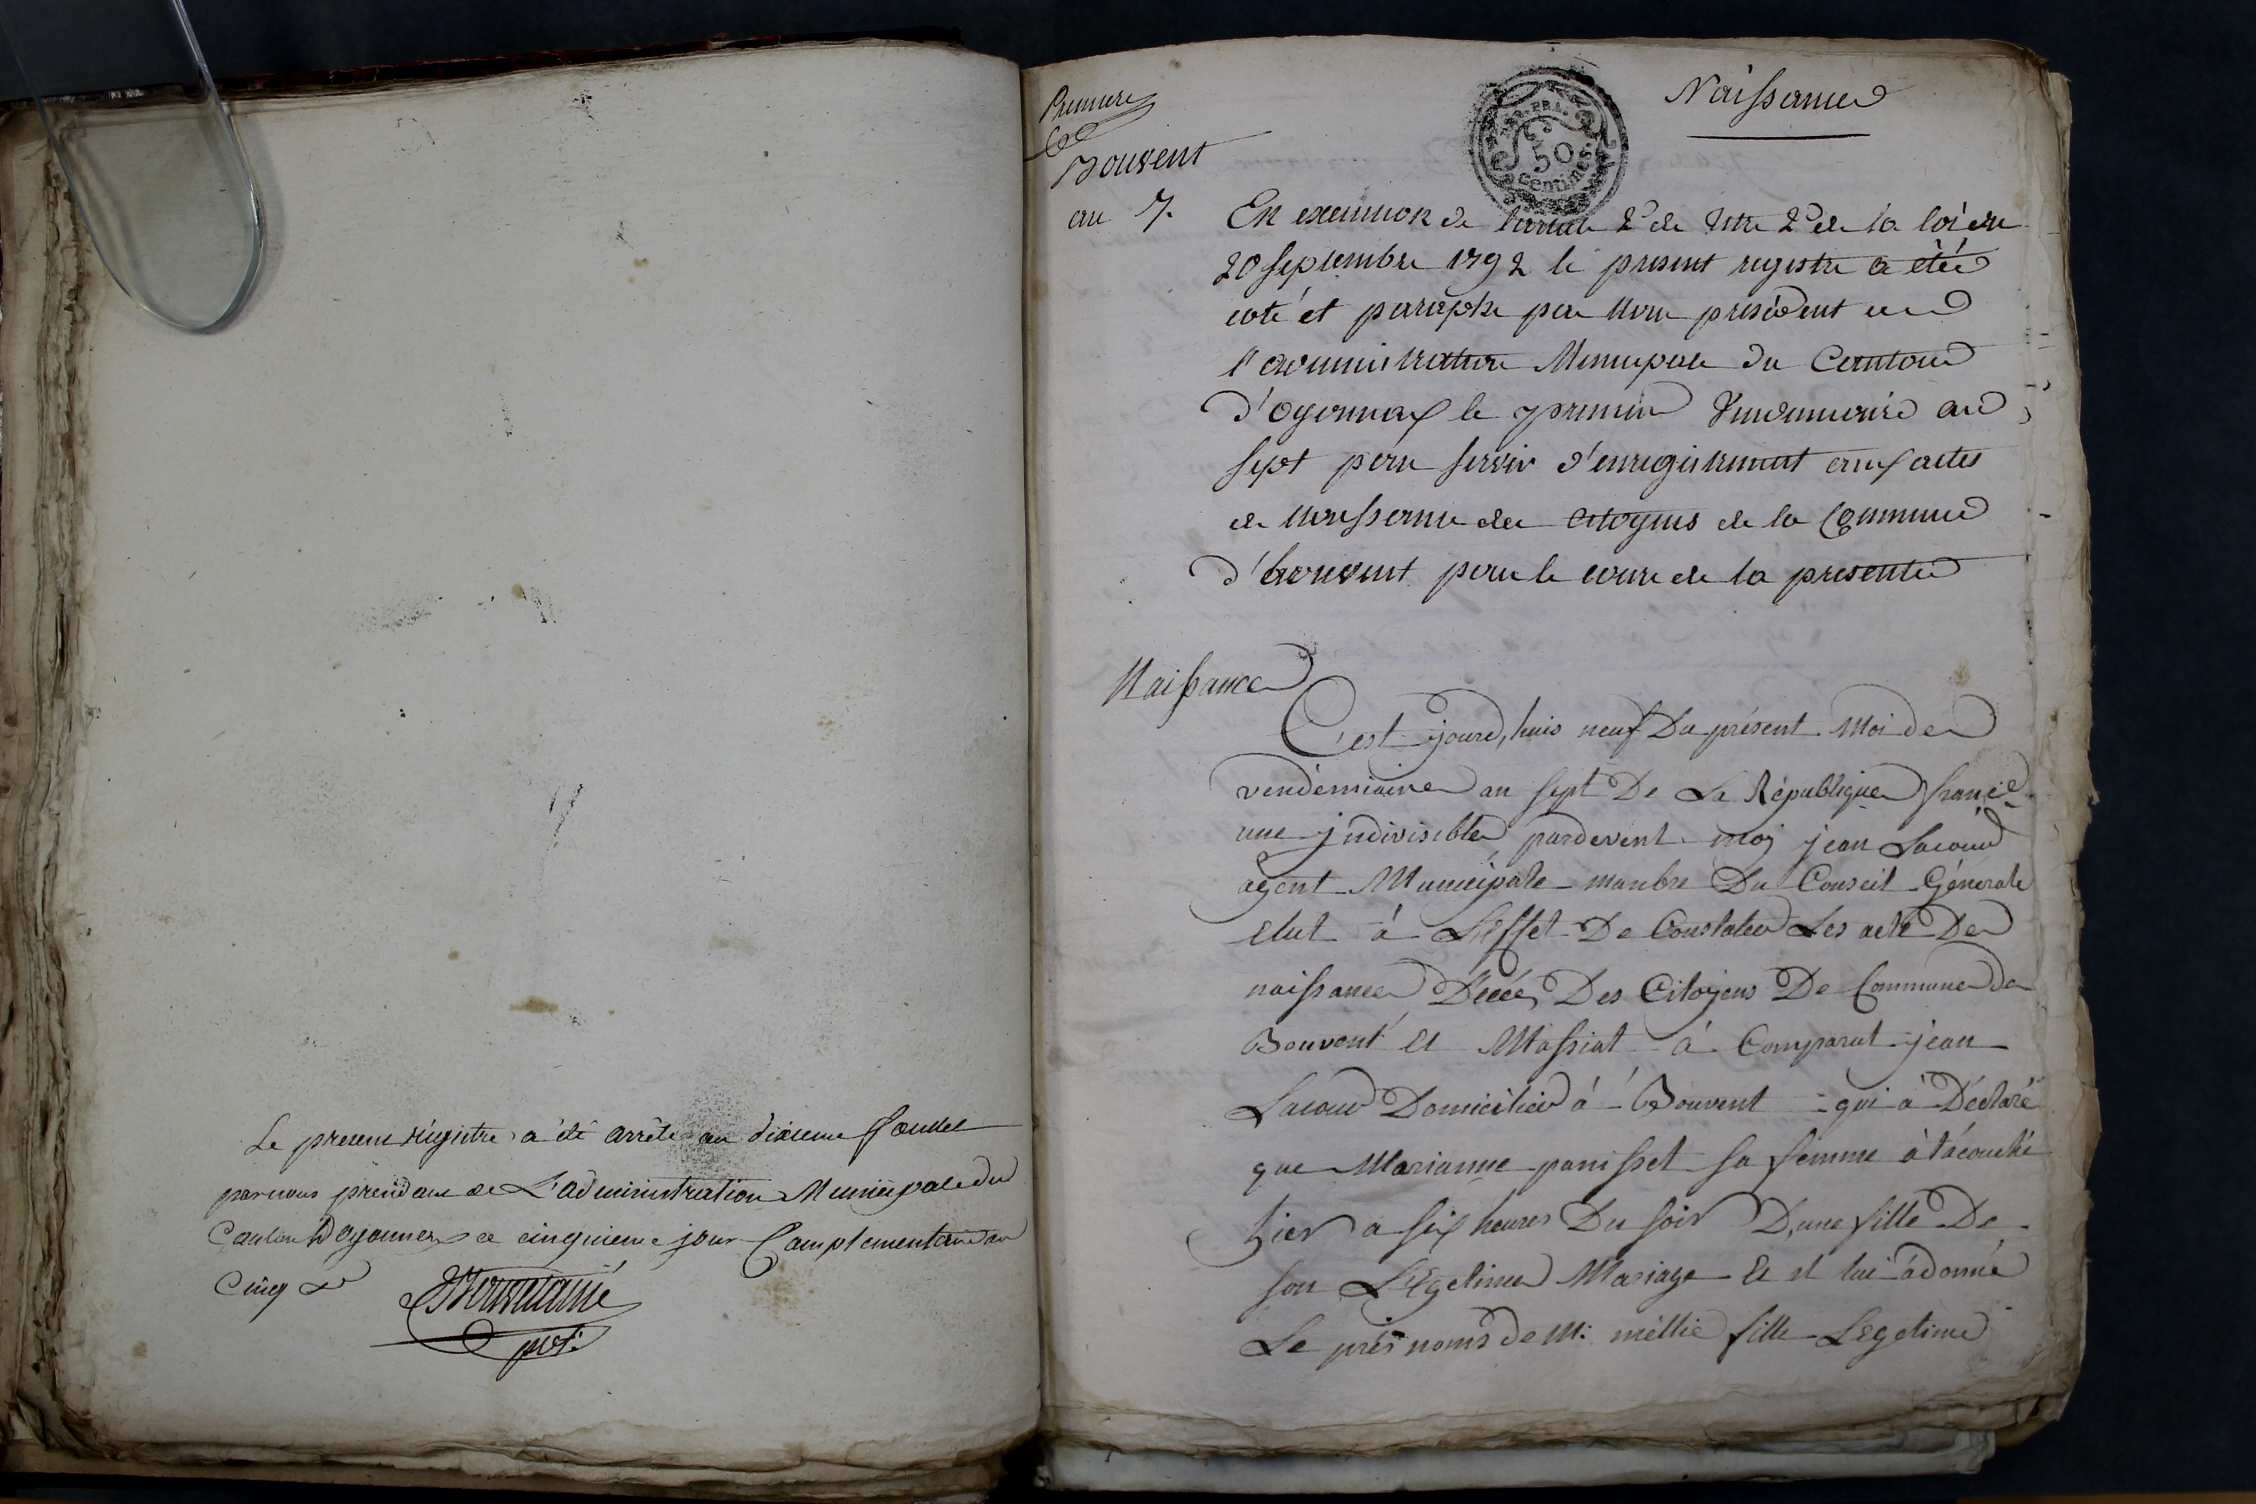 Le present régistre a été arrêté au dixieme feuillet
par nous president de L'administration Municipale du
Canton D'oyonnax ce cinquieme jour Complementaire an
Cinq
prest.
Premiere
Bouvent
an 7.
Naissance
REP. FRA.
50
centimes.
En execution de l'article 2e de titre 2e de la loi du
20 septembre 1792 le present registre a étée
coté et paraphe par nous président de
l'administration Municipale du Canton
d'Oyonnax le premier Vendemiaire an
sept pour servir d'enregistrement aux actes
de naissance des citoyens de la Commune
d'bouvent pour le cour de la presente
Naissance
C'est jourd,huis neuf Du présent Moi de
vendémiaire an sept De La République francse
une jndivisible pardevent moy jean Lacour
agent Municipale manbre Du Conseil Générale
elut á L'Effet De Constater Les acte De
naissance Décés Des Citoyens De Commune de
Bouvent Et Massiat á Comparut jean
Lacour Domicilié á Bouvent qui à Déclaré
que Marianne panisset sa femme à tácouché
hier a six heures Du soir D'une fille De
son L'Egetime Mariage Et il lui ádonné
Le prés noms de M: mellie fille L'Egetime